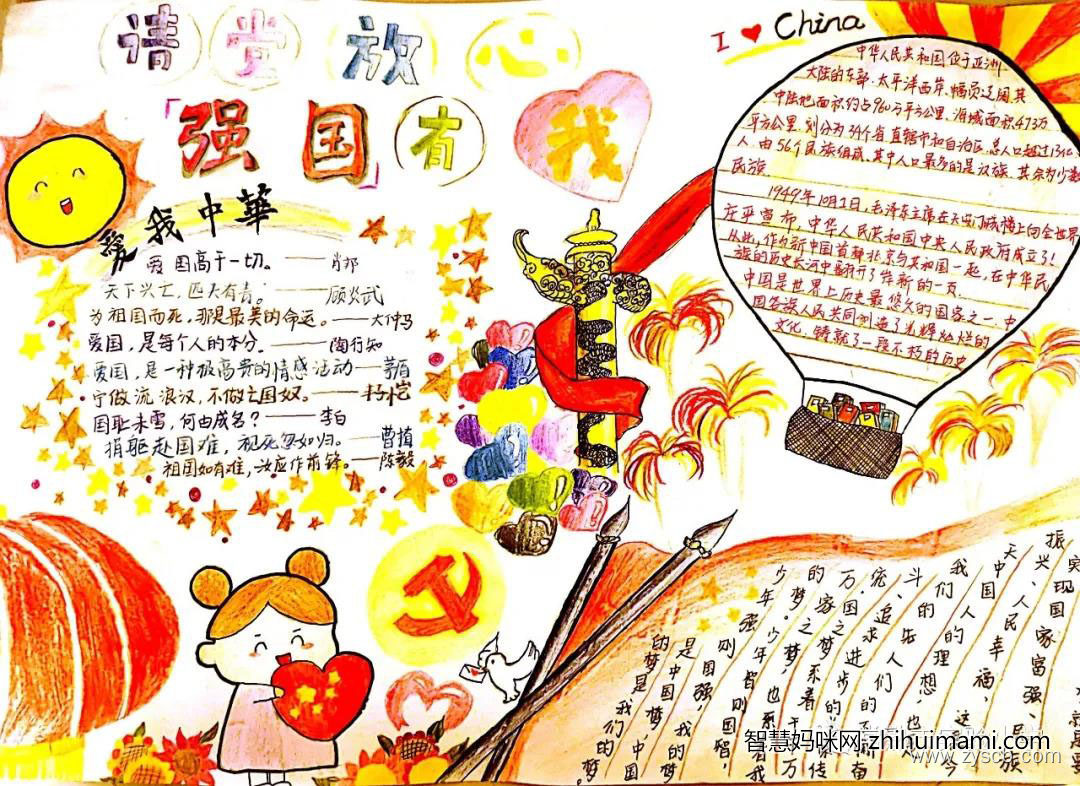 请党放心
「强国」有我
I ❤ China
爱我中華
爱国高于一切。——肖邦
天下兴亡，匹夫有责。——顾炎武
为祖国而死，那是最美的命运。——大仲马
爱国，是每个人的本分。——陶行知
爱国，是一种极高贵的情感活动——
宁做流浪汉，不做亡国奴。——
国耻未雪，何由成名？——李白
捐躯赴国难，视死忽如归。——曹植
祖国如有难，汝应作前锋。——陈毅
中华人民共和国位于亚洲
大陆的东部、太平洋西岸、幅员辽阔，其
中陆地面积约占960万平方公里，海域面积473万
平方公里，划分为34个省、直辖市和自治区，总人口超过13亿
人，由56个民族组成，其中人口最多的是汉族，其余为少数
民族
1949年10月1日，毛泽东主席在天安门城楼上向全世界
庄严宣布，中华人民共和国中央人民政府成立了！
从此，作为新中国首都北京与共和国一起，在中华民
族的历史长河中翻开了崭新的一页
中国是世界上历史最悠久的国家之一，中
国各族人民共同创造了光辉灿烂的
文化，铸就了一段不朽的历史
实现国家富强、民族
振兴、人民幸福，这
天中国人的理想，也
我们的先人们的
斗、追求进步的
宪
万国之梦，系着千万
的家之梦，也系
少年。少年智则国智，
少年强则国强，我的
是中国梦，中国
的梦是我们的梦
智慧妈咪网 zhihuimami.com
www.zysc